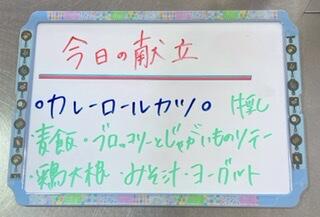 今日の献立
○カレーロールカツ○
麦飯・ブロッコリーとじゃがいものソテー
・鶏大根・みそ汁・ヨーグルト